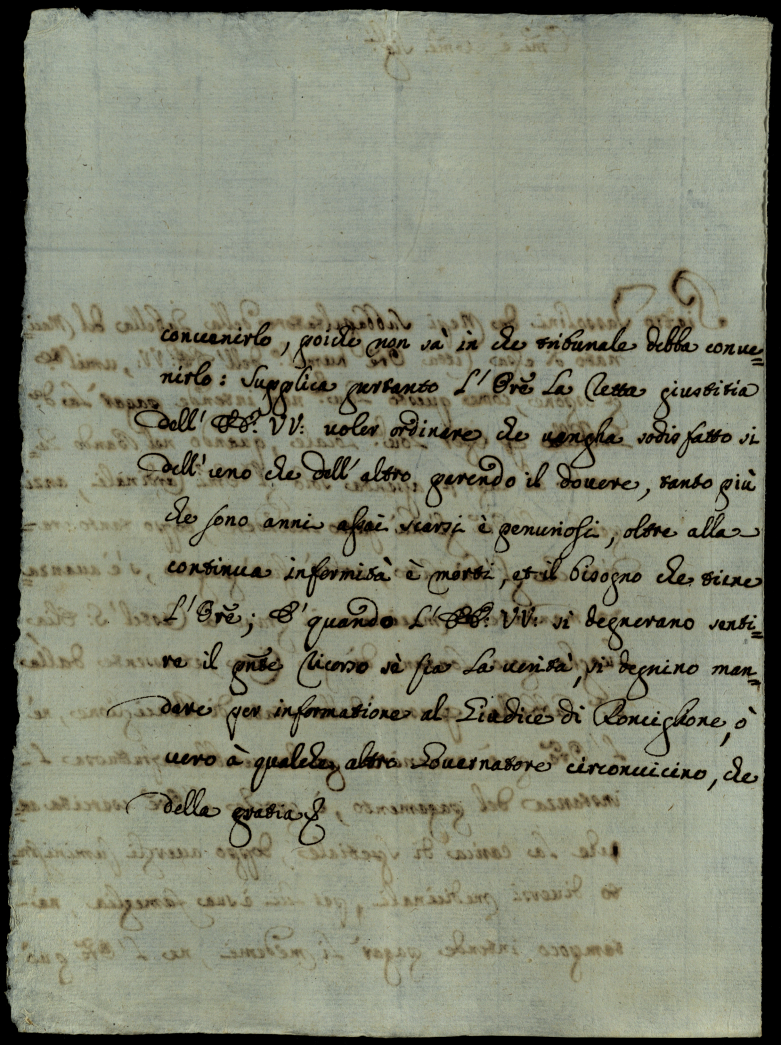 conuenirlo, poiche non sà in che tribunale debba conue=
nirlo: Supplica pertanto L'Ore La retta giustitia
dell' EE. VV: uoler ordinare, che uengha sodisfatto si
dell'uno che dell'altro, perendo il douere, tanto più
che sono anni assai scarsi è penuriosi, oltre alla
continua infermità è morti, et il bisogno che tiene
L'Ore; E' quando L'EE. VV: si degnerano senti=
re il pnte ricorso sè sia La uerità, si degnino man=
dare per informatione al Giudice di Ronciglione, ò
uero à qualche altro Gouernatore circonuicino, che
della gratia &